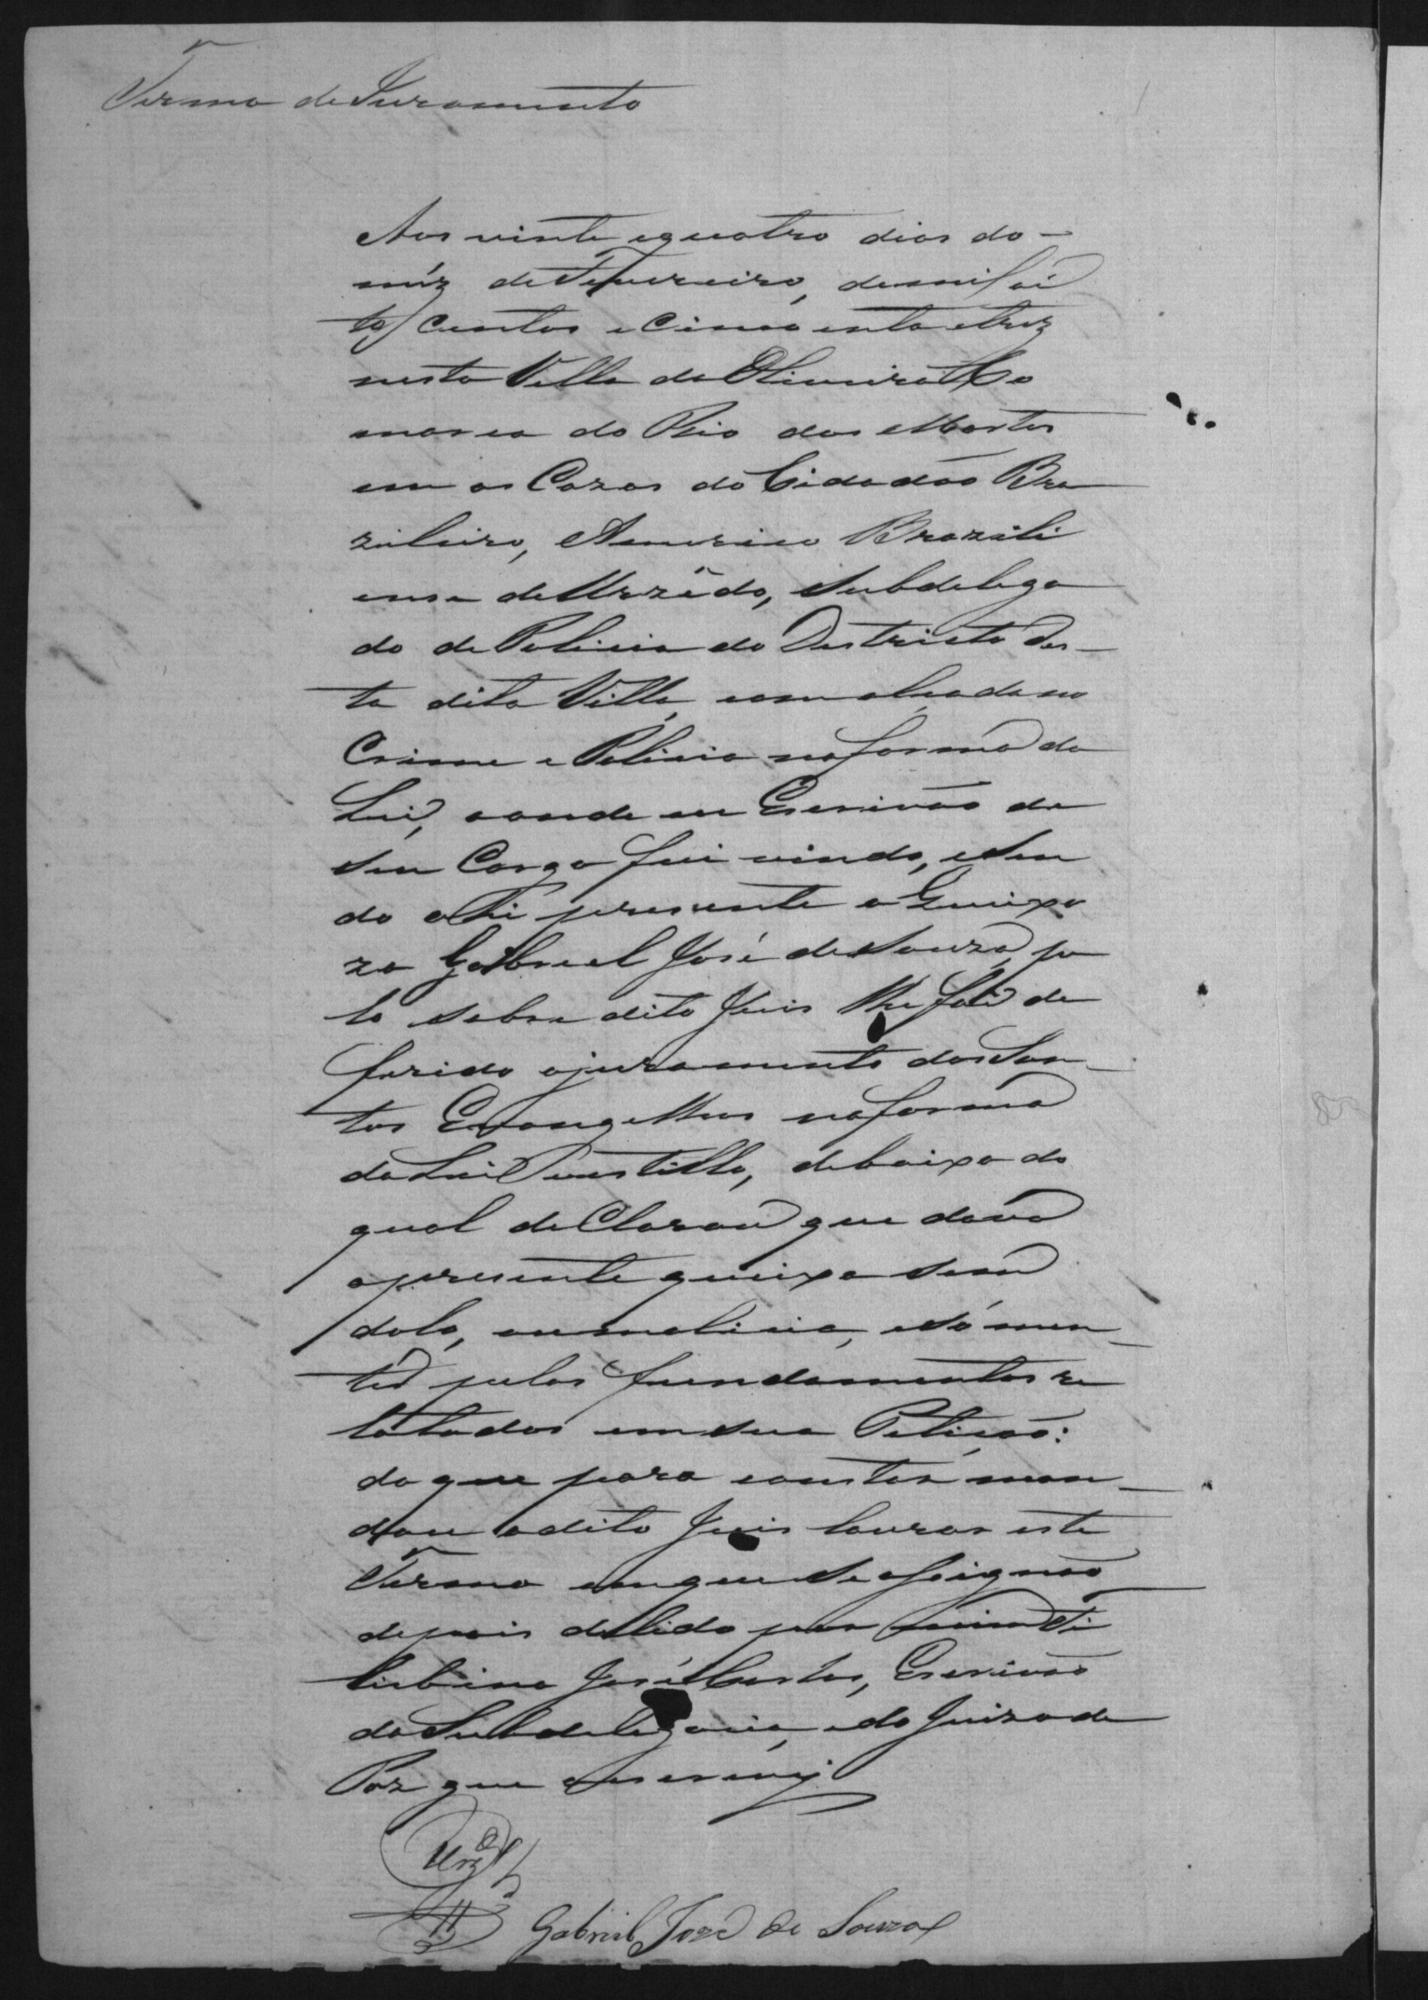 Termo de Juramento
Aos vinte e quatro dias do
mêz de Fevereiro, de mil oi
to Centos e Cincoenta e trez
nesta Villa da Oliveira Co
marca do Rio das Mortes
em as Cazas do Cidadão Bra
zileiro, Americo Brazili
ense de Urzêdo, Subdelega
do de Policia do Destricto des
ta dita Villa, com alçada no
Crime e Policia na forma da
Lei, aonde eu Escrivão de
seu Cargo fui vindo, e sen
do ahi prezente o Queixo
zo Gabriel José de Souza, pe
lo sobre dito Juis lhe foi de
ferido o juramento dos San
tos Evangelhos na forma
da Lei Junstillo, debaixo do
qual declarou que dava
a prezente queixa sem
dolo, ou malicia, e só men
te pelos fundamentos re
latados em sua Petição:
do que para constar man
dou o dito Juis lavrar este
Termo em que se assignão
depois de lido por mim
José Bastos, Escrivão
da Subdelegacia, e do Juizo de
Paz que o escrevi
Urzdo
Gabriel José de Souza